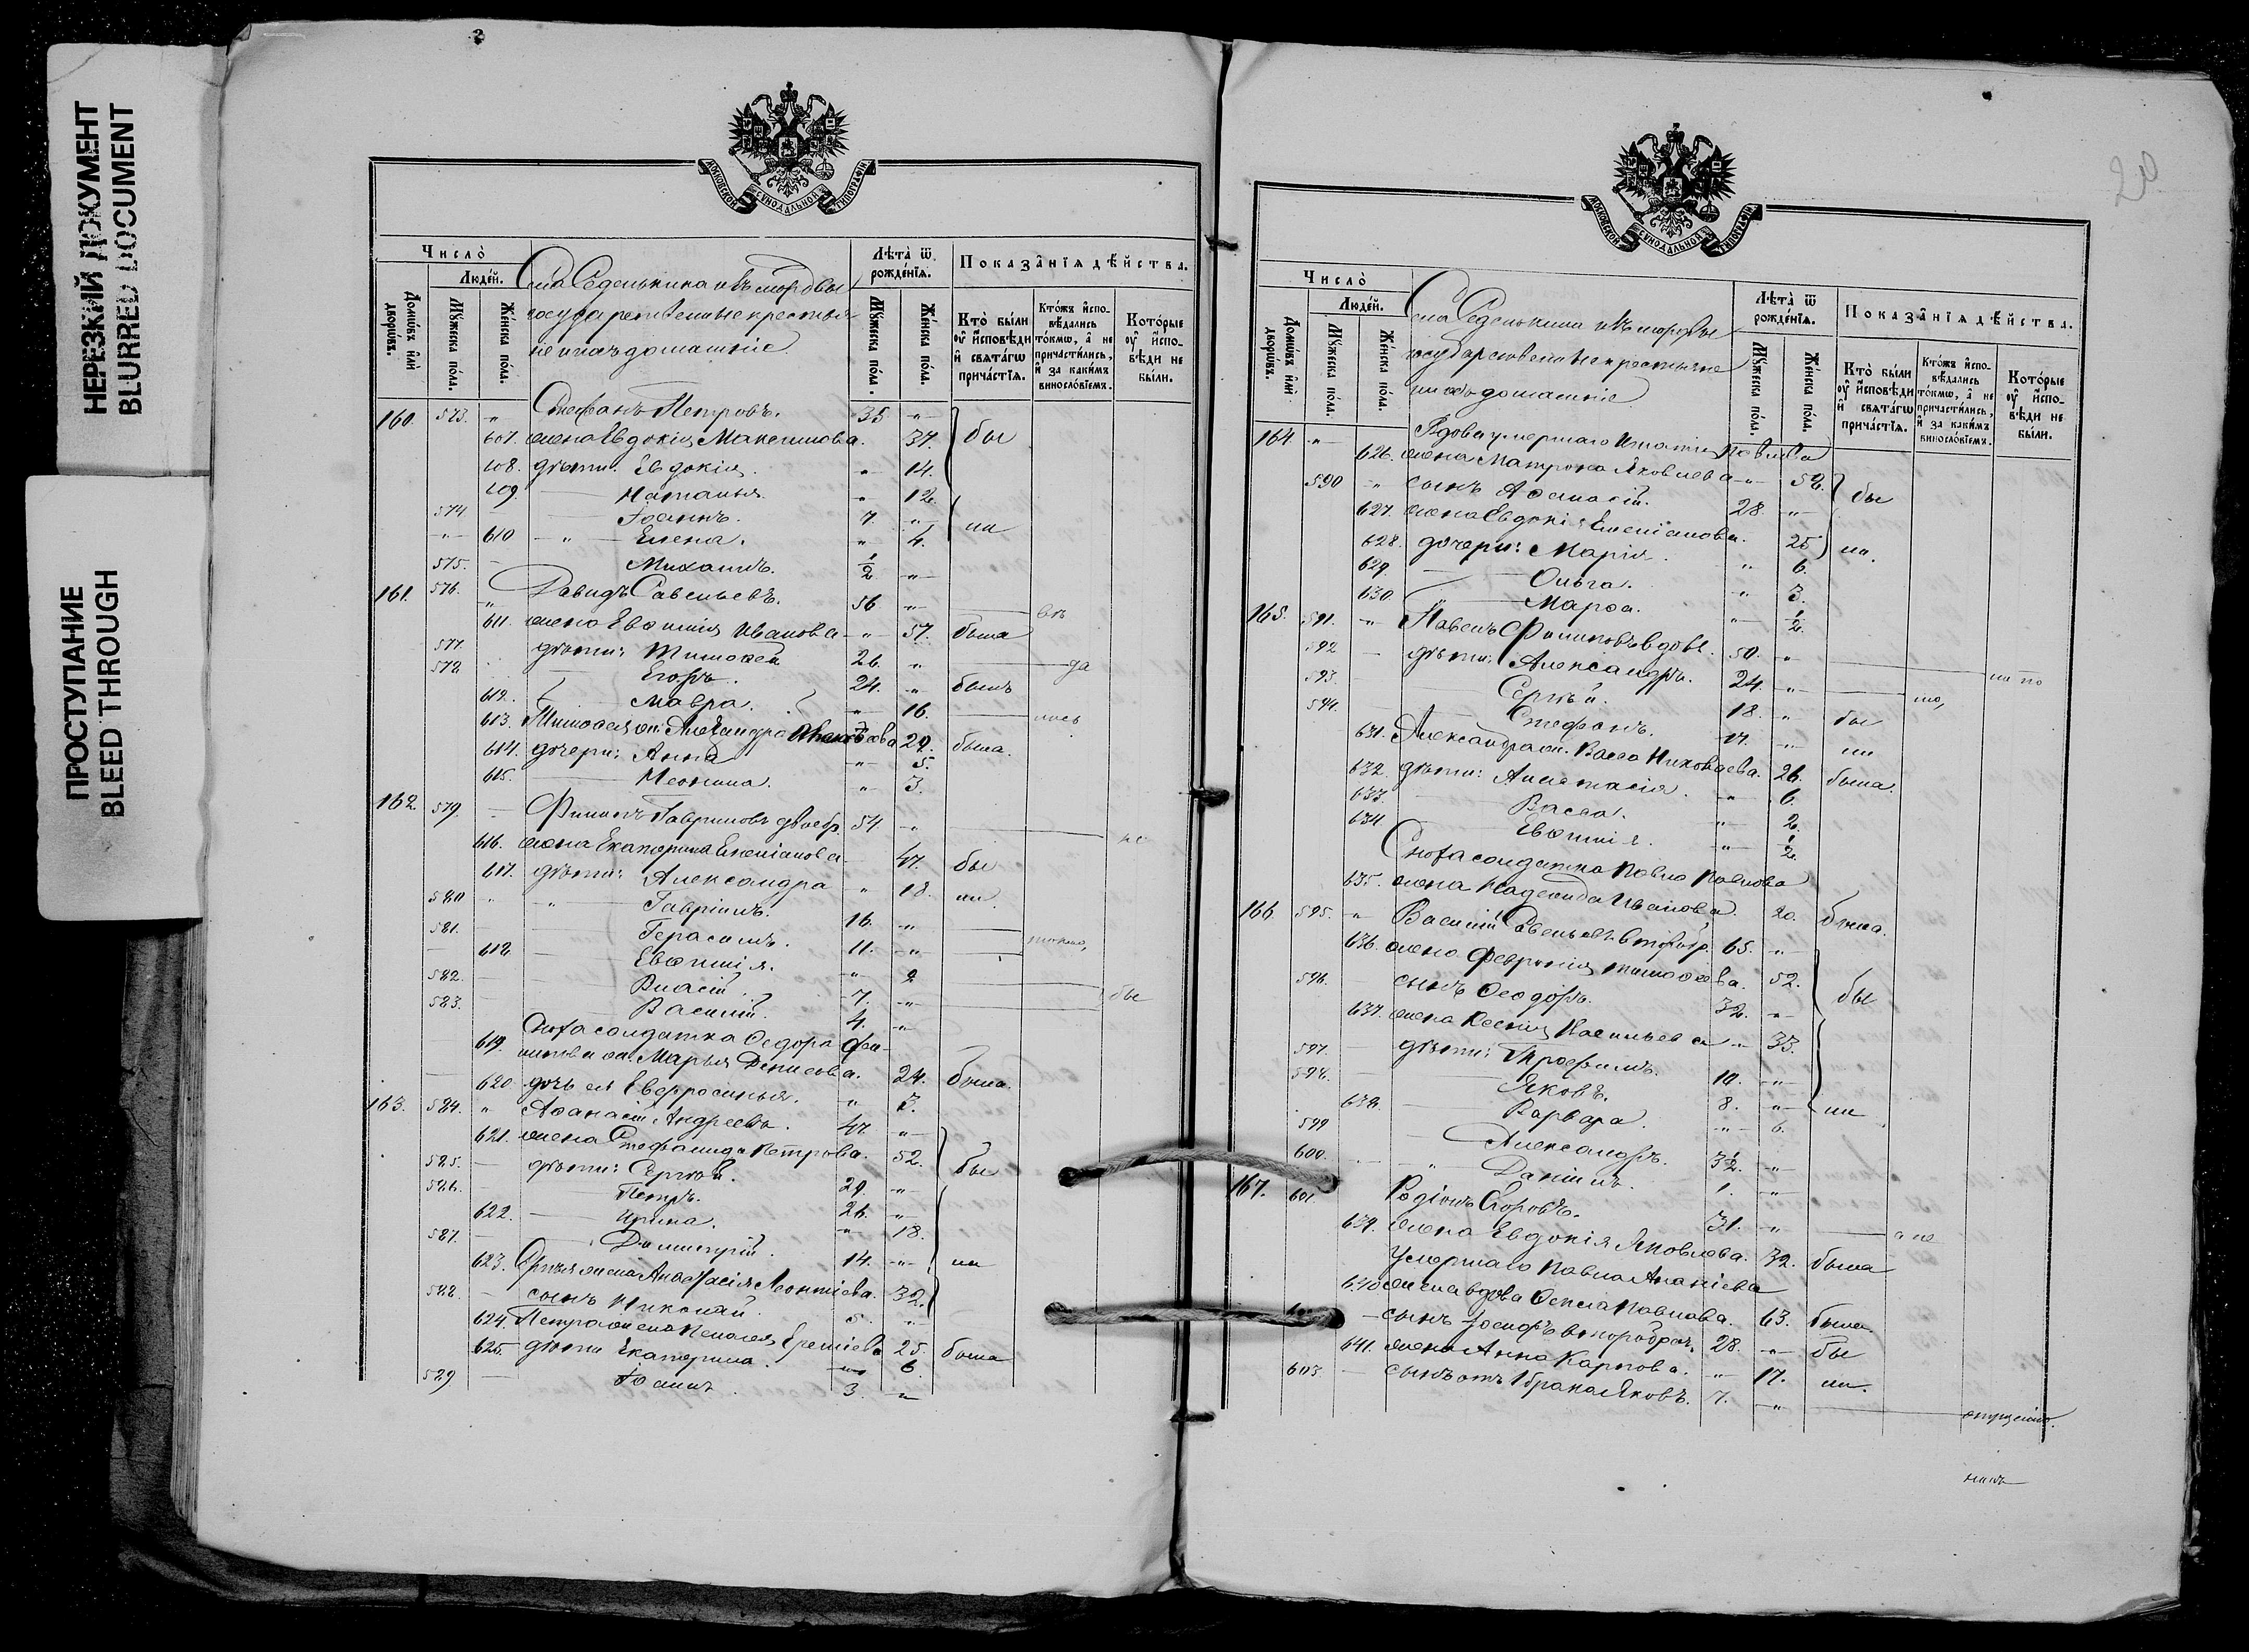 НЕРЕЗКИЙ ДОКУМЕНТ
BLURRED DOCUMENT
ПРОСТУПАНИЕ
BLEED THROUGH
МОСКОВСКОЙ СѴНОДАЛЬНОЙ ТИПОГРАФІИ
Число̀
Люде́й.
Домѡвъ и҆лѝ дворѡвъ.
Мꙋ́жеска по́ла.
Же́нска по́ла.
Села Седенькина изъ мордвы
государственные крестья-
не и ихъ домашніе
Лѣта̀ ѿ рожде́нїѧ.
Мꙋ́жеска по́ла.
Же́нска по́ла.
Показа̑нїѧ дѣ́йства.
Кто̀ бы́ли оу҆ и҆сповѣ́ди и҆ свѧта́гѡ прича́стїѧ.
Кто́жъ и҆спо-вѣ́дались то́кмѡ, а҆ не причасти́лись, и҆ за каки́мъ винословїемъ.
Кото́рые оу҆ и҆спо-вѣ́ди не бы́ли.
160. 573. " Стефанъ Петровъ. 35 "
607. жена Евдокія Максимова. 37. бы
608. дѣти: Евдокія. " 14.
609. Наталья. " 12.
574 Іоаннъ. 7. " ли
" 610 " Елена. " 4.
575. Михаилъ. 1/2 "
161. 576. " Давидъ Савельевъ. 56 "
611. жена Евѳимія Иванова " 57. была
577. дѣти: Тимоѳей 26. " да
578. Егоръ. 24. " былъ
612. Мавра. " 16.
613. Тимоѳея ж. Александра 29. была.
614. дочери: Анна " 5.
615. " 3.
162. 579. Филипъ Гавриловъ двоебр. 54 " не
616. жена Екатерина Емеліанова 47. бы
617. дѣти: Александра " 18. ли.
580 " " Гавріилъ. 16. "
581. Герасимъ. 11. " токмо,
618. Евѳимія. " 9
582. Власій. 7. " бы
583. Василій. 4. "
Сноха солдатка Ѳедора Фи-
619. липова ж. Марья Денисова. 24. была.
620 дочь ея Евфросинья. " 3.
163. 584. " Аѳанасій Андреевъ. 47. "
621. жена Стефанида Петрова. 52. бы
585. дѣти: Сергѣй. 29. "
586. Петръ. 26. "
622. Ирина. " 18.
587. Димитрій. 14. " ли
623. Сергѣя жена Анастасія Леонтіева. 32.
588. сынъ Николай. 5. "
624. Петра жена Пелагея 25. была
625. дѣти Екатерина. " 6.
589 Іоаннъ. 3. "
20
МОСКОВСКОЙ СѴНОДАЛЬНОЙ ТИПОГРАФІИ
Число̀
Люде́й.
Домѡвъ и҆лѝ дворѡвъ.
Мꙋ́жеска по́ла.
Же́нска по́ла.
Села Седенькина изъ мордвы
государственные крестьяне
и ихъ домашніе
Лѣта̀ ѿ рожде́нїѧ.
Мꙋ́жеска по́ла.
Же́нска по́ла.
Показа̑нїѧ дѣ́йства.
Кто̀ бы́ли оу҆ и҆сповѣ́ди и҆ свѧта́гѡ прича́стїѧ.
Кто́жъ и҆спо-вѣ́дались то́кмѡ, а҆ не причасти́лись, и҆ за каки́мъ винословїемъ.
Кото́рые оу҆ и҆спо-вѣ́ди не бы́ли.
164. " Вдова умершаго Игнатія Павлова
626. жена Матрона Яковлева " 52. бы
590 " сынъ Аѳанасій. 28. "
627. жена Евдокія Емеліанова. 25 ли.
628. дочери: Марія. " 6.
629. Ольга. " 3.
630. Марѳа. " 1/2.
165. 591. " Павелъ Филиповъ вдов. 50. " ни по
592 дѣти: Александръ. 24. " то,
593. Сергѣй. 18. " бы
594. Стефанъ. 17. " ли
631. Александра ж. Васса Николаева. 26. была.
632. дѣти: Анастасія. " 6.
633. Васса. " 2.
634 Евѳимія. " 1/2.
Сноха солдатка Павла Павлова
635. жена Надежда Иванова. 20. была.
166. 595. " Василій Савельевъ второбр. 65. "
636. жена Февронія Тимоѳеева. 52. бы
596. сынъ Ѳеодоръ. 32. "
637. жена Ксенія Васильева " 33.
597. дѣти: Трофимъ. 10. "
598. Яковъ. 8. " ли
638. Варвара. " 6.
599 Александръ. 3 1/2. "
600. " Даніилъ. 1. "
167. 601. Родіонъ Егоровъ. 31. " а не
639. жена Евдокія Яковлева. 32. была
Умершаго Павла Ананіева
640 жена вдова Павлова. 63. была.
сынъ Іосифъ второбрач. 28. " бы
641. жена Анна Карпова. " 17. ли.
603. сынъ отъ 1 брака Яковъ. 7. " опущенію.